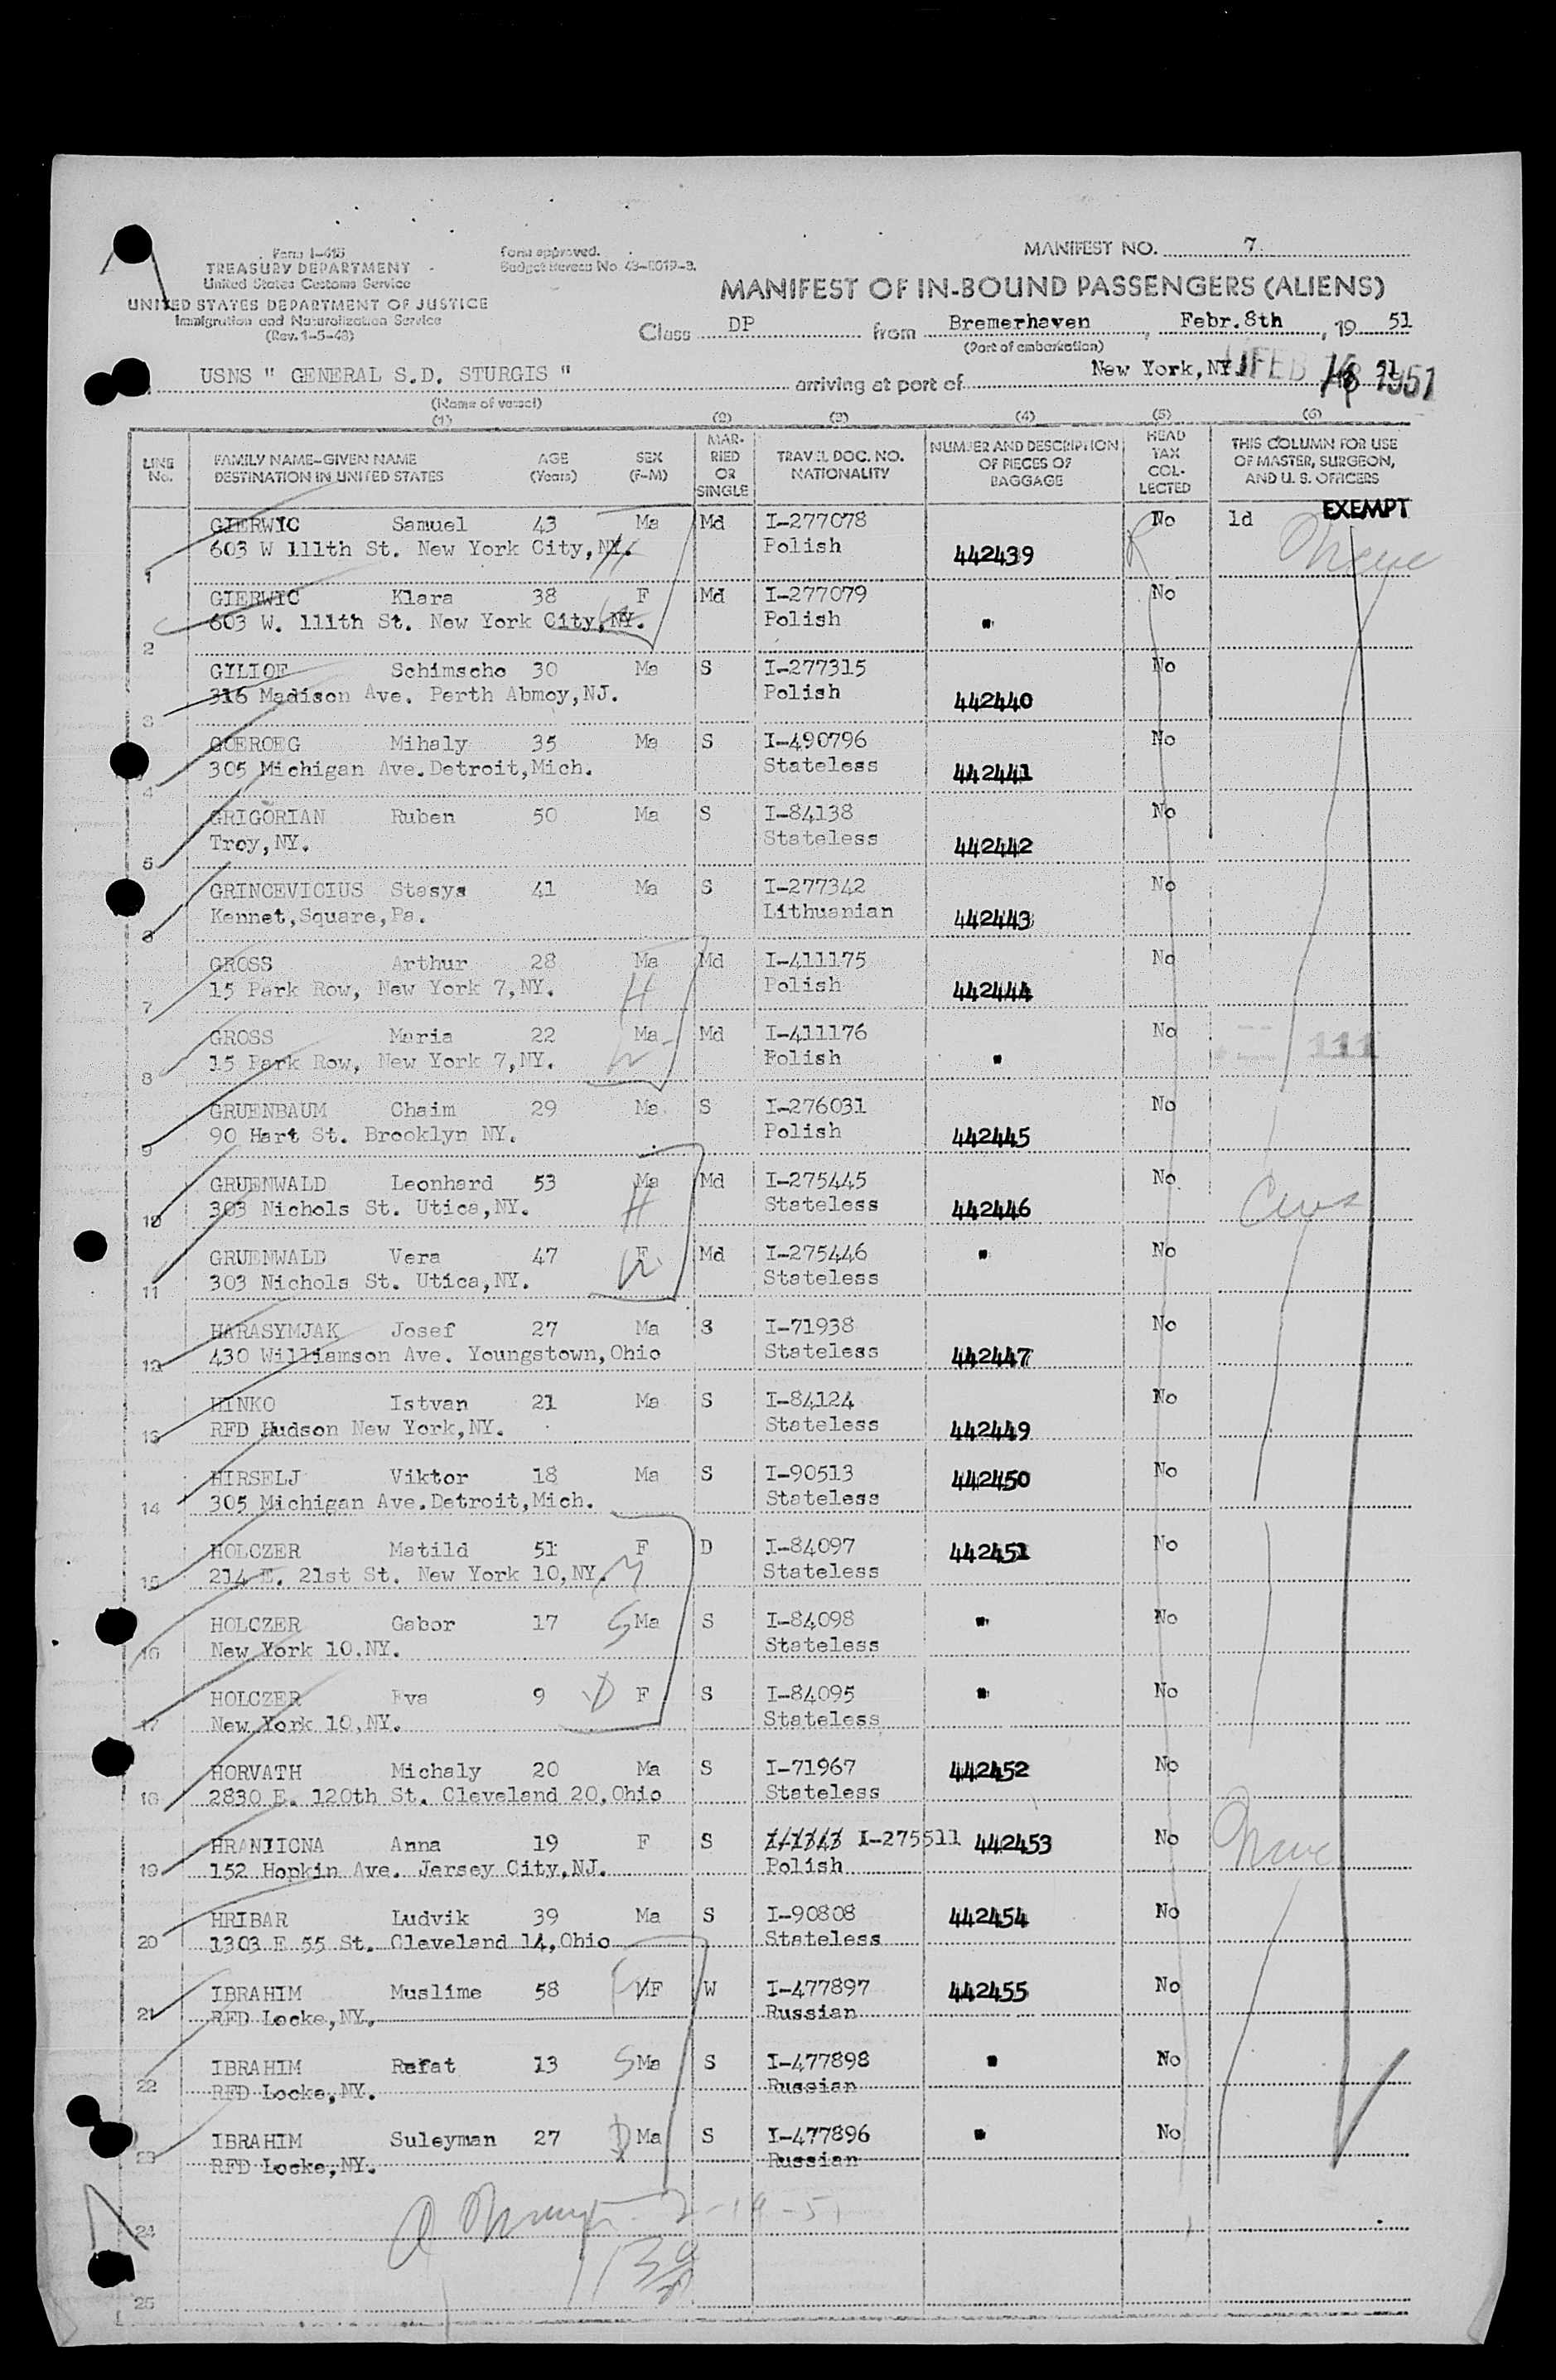 Form I-415
TREASURY DEPARTMENT
United States Customs Service
UNITED STATES DEPARTMENT OF JUSTICE
Immigration and Naturalization Service
(Rev. 1-5-48)
Form approved.
Budget Bureau No. 43-R019-3.
MANIFEST NO. 7.
MANIFEST OF IN-BOUND PASSENGERS (ALIENS)
Class DP from Bremerhaven, Febr.8th, 19 51
(Port of embarkation)
USNS " GENERAL S.D. STURGIS " arriving at port of New York, NY. FEB 1951
(Name of vessel)
(1) (2) (3) (4) (5) (6)
LINE No. FAMILY NAME-GIVEN NAME DESTINATION IN UNITED STATES AGE (Years) SEX (F-M) MAR-RIED OR SINGLE TRAVEL DOC. NO. NATIONALITY NUMBER AND DESCRIPTION OF PIECES OF BAGGAGE HEAD TAX COL-LECTED THIS COLUMN FOR USE OF MASTER, SURGEON, AND U. S. OFFICERS
EXEMPT
GIERWIC Samuel 43 Ma Md I-277078 No 1d
1 603 W 111th St. New York City, NY. H Polish 442439
GIERWIC Klara 38 F Md I-277079 No
2 603 W. 111th St. New York City, NY. Polish "
GILIOF Schimscho 30 Ma S I-277315 No
3 316 Madison Ave. Perth Abmoy, NJ. Polish 442440
GOEROEG Mihaly 35 Ma S I-490796 No
4 305 Michigan Ave. Detroit, Mich. Stateless 442441
GRIGORIAN Ruben 50 Ma S I-84138 No
5 Troy, NY. Stateless 442442
GRINCEVICIUS Stasys 41 Ma S I-277342 No
6 Kennet, Square, Pa. Lithuanian 442443
GROSS Arthur 28 Ma Md I-411175 No
7 15 Park Row, New York 7, NY. H Polish 442444
GROSS Maria 22 Ma Md I-411176 No
8 15 Park Row, New York 7, NY. W Polish " 111
GRUENBAUM Chaim 29 Ma S I-276031 No
9 90 Hart St. Brooklyn NY. Polish 442445
GRUENWALD Leonhard 53 Ma Md I-275445 No
10 303 Nichols St. Utica, NY. H Stateless 442446
GRUENWALD Vera 47 F Md I-275446 " No
11 303 Nichols St. Utica, NY. W Stateless
HARASYMJAK Josef 27 Ma S I-71938 No
12 430 Williamson Ave. Youngstown, Ohio Stateless 442447
HINKO Istvan 21 Ma S I-84124 No
13 RFD Hudson New York, NY. Stateless 442449
HIRSELJ Viktor 18 Ma S I-90513 442450 No
14 305 Michigan Ave. Detroit, Mich. Stateless
HOLCZER Matild 51 F D I-84097 442451 No
15 214 E. 21st St. New York 10, NY. M Stateless
HOLCZER Gabor 17 S Ma S I-84098 " No
16 New York 10.NY. Stateless
HOLCZER Eva 9 D F S I-84095 " No
17 New York 10.NY. Stateless
HORVATH Michaly 20 Ma S I-71967 442452 No
18 2830 E. 120th St. Cleveland 20, Ohio Stateless
HRANIICNA Anna 19 F S I-275511 442453 No
19 152 Hopkin Ave. Jersey City, NJ. Polish
HRIBAR Ludvik 39 Ma S I-90808 442454 No
20 1303 E 55 St. Cleveland 14, Ohio Stateless
IBRAHIM Muslime 58 MF W I-477897 442455 No
21 RFD Locke, NY. Russian
IBRAHIM Refat 13 S Ma S I-477898 " No
22 RFD Locke, NY. Russian
IBRAHIM Suleyman 27 D Ma S I-477896 " No
23 RFD Locke, NY. Russian
24 2-19-51
25